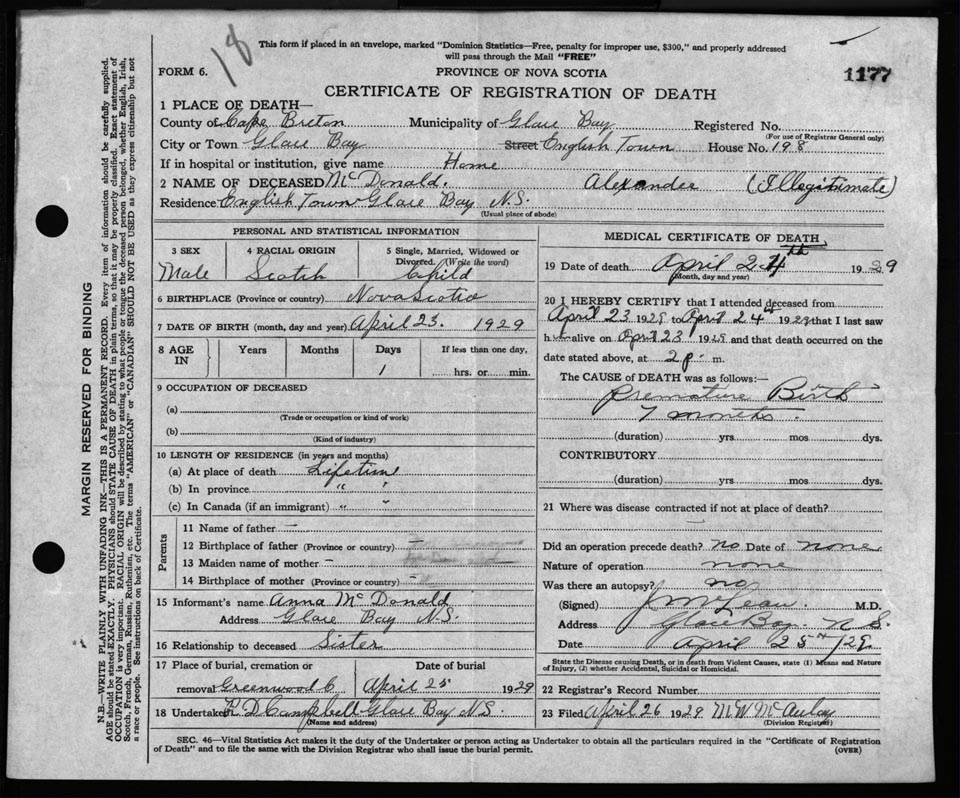 18
This form if placed in an envelope, marked "Dominion Statistics—Free, penalty for improper use, $300," and properly addressed
will pass through the Mail "FREE"
FORM 6.
PROVINCE OF NOVA SCOTIA
1177
CERTIFICATE OF REGISTRATION OF DEATH
1 PLACE OF DEATH—
County of Cape Breton Municipality of Glace Bay Registered No.
(For use of Registrar General only)
City or Town Glace Bay Street English Town House No. 198
If in hospital or institution, give name Home
2 NAME OF DECEASED McDonald. Alexander (Illegitimate)
Residence English Town Glace Bay N.S.
(Usual place of abode)
PERSONAL AND STATISTICAL INFORMATION
3 SEX 4 RACIAL ORIGIN 5 Single, Married, Widowed or
Divorced. (Write the word)
Male Scotch Child
6 BIRTHPLACE (Province or country) Nova Scotia
7 DATE OF BIRTH (month, day and year) April 23. 1929
8 AGE IN Years Months Days If less than one day,
1 hrs. or min.
9 OCCUPATION OF DECEASED
(a)
(Trade or occupation or kind of work)
(b)
(Kind of industry)
10 LENGTH OF RESIDENCE (in years and months)
(a) At place of death Lifetime
(b) In province " "
(c) In Canada (if an immigrant) " "
Parents
11 Name of father —
12 Birthplace of father (Province or country) —
13 Maiden name of mother —
14 Birthplace of mother (Province or country) —
15 Informant's name Anna McDonald
Address Glace Bay N.S.
16 Relationship to deceased Sister
17 Place of burial, cremation or Date of burial
removal Greenwood C April 25 1929
18 Undertaker R D Campbell Glace Bay N.S.
(Name and address)
MEDICAL CERTIFICATE OF DEATH
19 Date of death April 24th 1929
(Month, day and year)
20 I HEREBY CERTIFY that I attended deceased from
April 23 1929 to April 24th 1929 that I last saw
h alive on April 23 1929 and that death occurred on the
date stated above, at 2 p. m.
The CAUSE of DEATH was as follows:—
Premature Birth
7 months.
(duration) yrs mos dys.
CONTRIBUTORY
(duration) yrs. mos. dys.
21 Where was disease contracted if not at place of death?
—
Did an operation precede death? no Date of none
Nature of operation none
Was there an autopsy? no
(Signed) McLean. M.D.
Address Glace Bay N.S.
Date April 25th /29
State the Disease causing Death, or in death from Violent Causes, state (1) Means and Nature
of Injury, (2) whether Accidental, Suicidal or Homicidal.
22 Registrar's Record Number
23 Filed April 26 1929 M W McAulay
(Division Registrar)
SEC. 46—Vital Statistics Act makes it the duty of the Undertaker or person acting as Undertaker to obtain all the particulars required in the "Certificate of Registration
of Death" and to file the same with the Division Registrar who shall issue the burial permit.
(OVER)
MARGIN RESERVED FOR BINDING
N.B.—WRITE PLAINLY WITH UNFADING INK—THIS IS A PERMANENT RECORD. Every item of information should be carefully supplied.
AGE should be stated EXACTLY. PHYSICIANS should STATE CAUSE OF DEATH in plain terms, so that it may be properly classified. Exact statement of
OCCUPATION is very important. RACIAL ORIGIN will be described by stating to what people or tongue the deceased person belonged, whether English, Irish,
Scotch, French, German, Russian, Ruthenian, etc. The terms "AMERICAN" or "CANADIAN" SHOULD NOT BE USED as they express citizenship but not
a race or people. See instructions on back of Certificate.